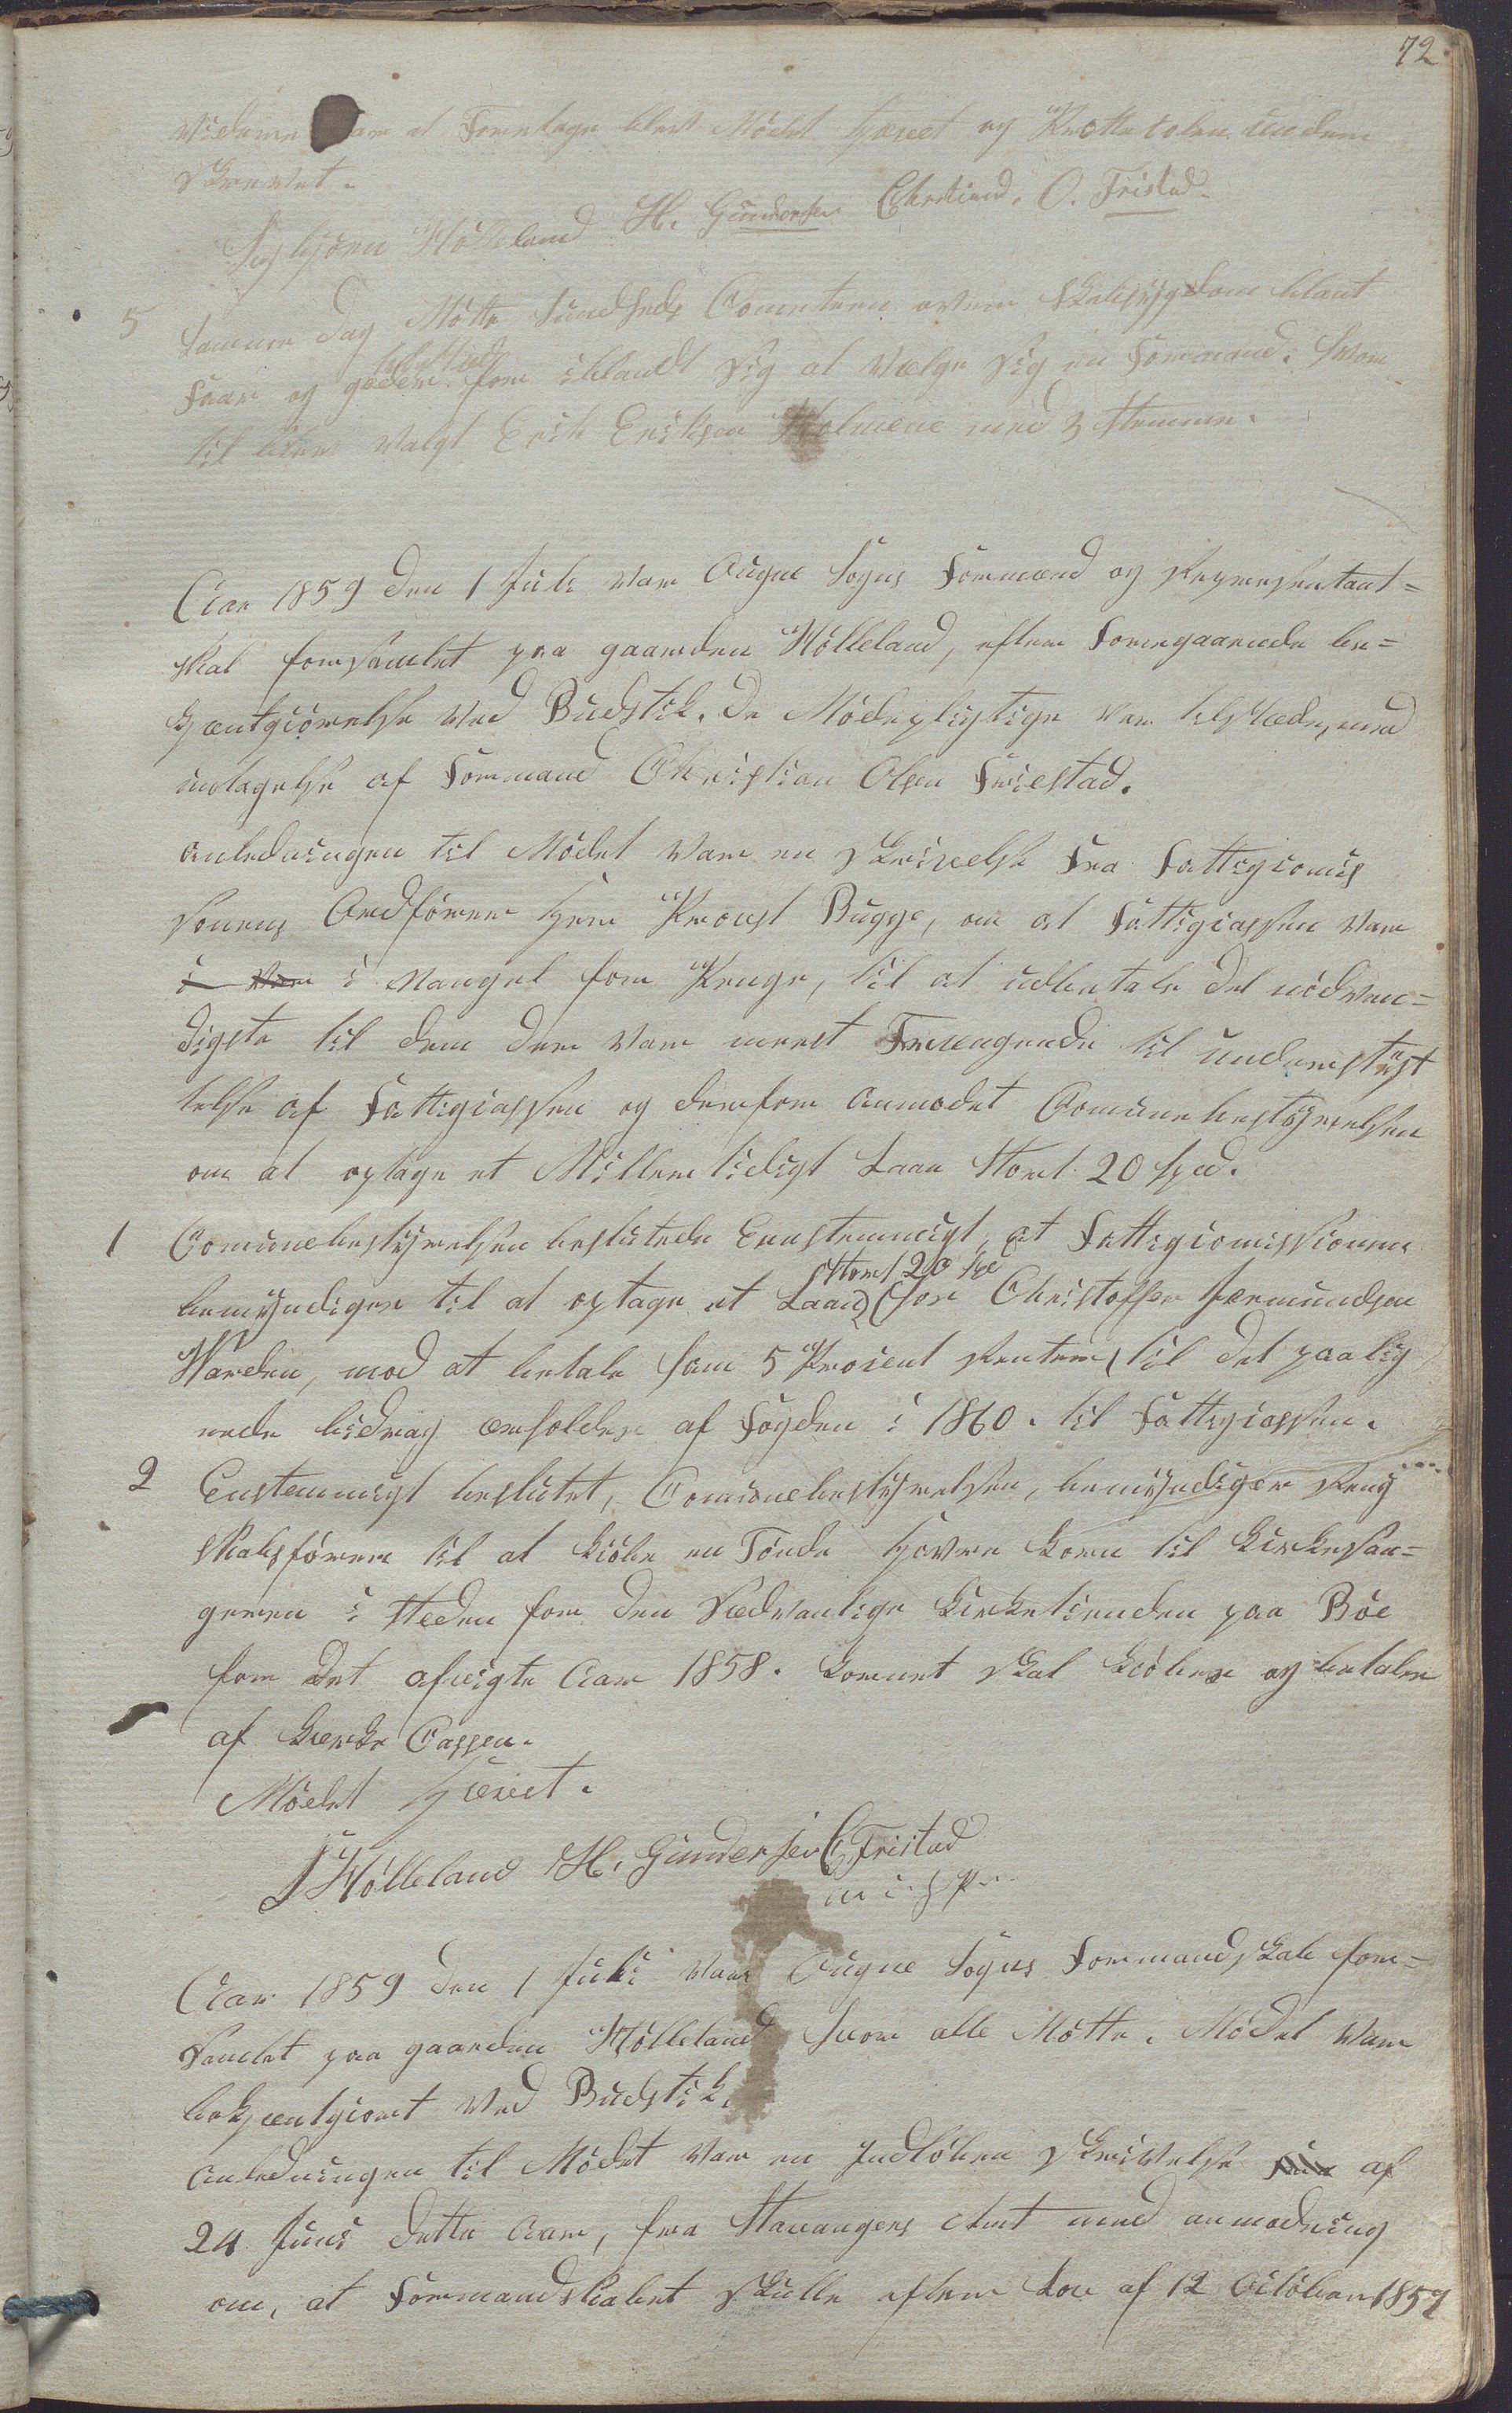 72
videre var at Foretage blev Mödet hævet og Protocolen under
skrevet.
Asbjörn Hölleland H. Gundersen Christian O. Fristad
5 Samme dag Mötte Sundheds Comiteen over Skabsygdom blant
Faar og geder som iblandt sig at Vælge sig en Formand. Hvor
til blev Valgt Erik Eriksen Holmene med 3 stemmer.
Aar 1859 den 1 Juli var Ougne Sogns Formand og Representant=
skab forsamlet paa gaarden Hölleland, efter Foregaaende be=
kjentgiörelse ved Budstik. De Mödepligtige var tilstæde, med
undtagelse af Formand Christian Olsen Friestad.
Anledningen til Mödet var en skrivelse Fra Fattigcomis
sionens Ordförer Herr Provst Bugge, om at Fattigcassen var
i var i Mangel for Penge, til at udbetale det nödven=
digste til dem der var meest Trængende til understöt
telse af Fattigcassen og derfor anmodet Comunebestyrelsen
om at optage et Midlertidigt Laan Stort 20 Spd.
1 Comunebestyrelsen beslutede Eenstemmigt, at Fattigcomissionen
Stort 20 Spd
bemyndiges til at optage et Laan hos Christoffer Sæmundsen
Varden, mod at betale ham 5 Procent Renter, til det paalig
nede bidrag erholdes af Fogden i 1860. til Fattigcassen.
2 Enstemmigt beslutet, Comunebestyrelsen, bemyndiger Reng
skabsförer til at kiöbe en Tönde Havre korn til Kirkesan=
geren i Steden for den Sædvanlige Kirketienden paa Böe
for det afvigte Aar 1858. Kornet skal kiöbes og betales
af Kirke Cassen.
Mödet Hævet.
A Hölleland H. Gundersen C Fristad
Aar 1859 den 1 Juli var Ougne Sogns Formandskab for=
samlet paa gaarden Hölleland hvor alle Mötte. Mödet var
bekjentgiort ved Budstik.
Anledningen til Mödet var en Indlöben skrivelse af
24 Juni dette Aar, fra Stavangers Amt med anmodning
om, at Formandskabet skulle efter Lov af 12 October 1857